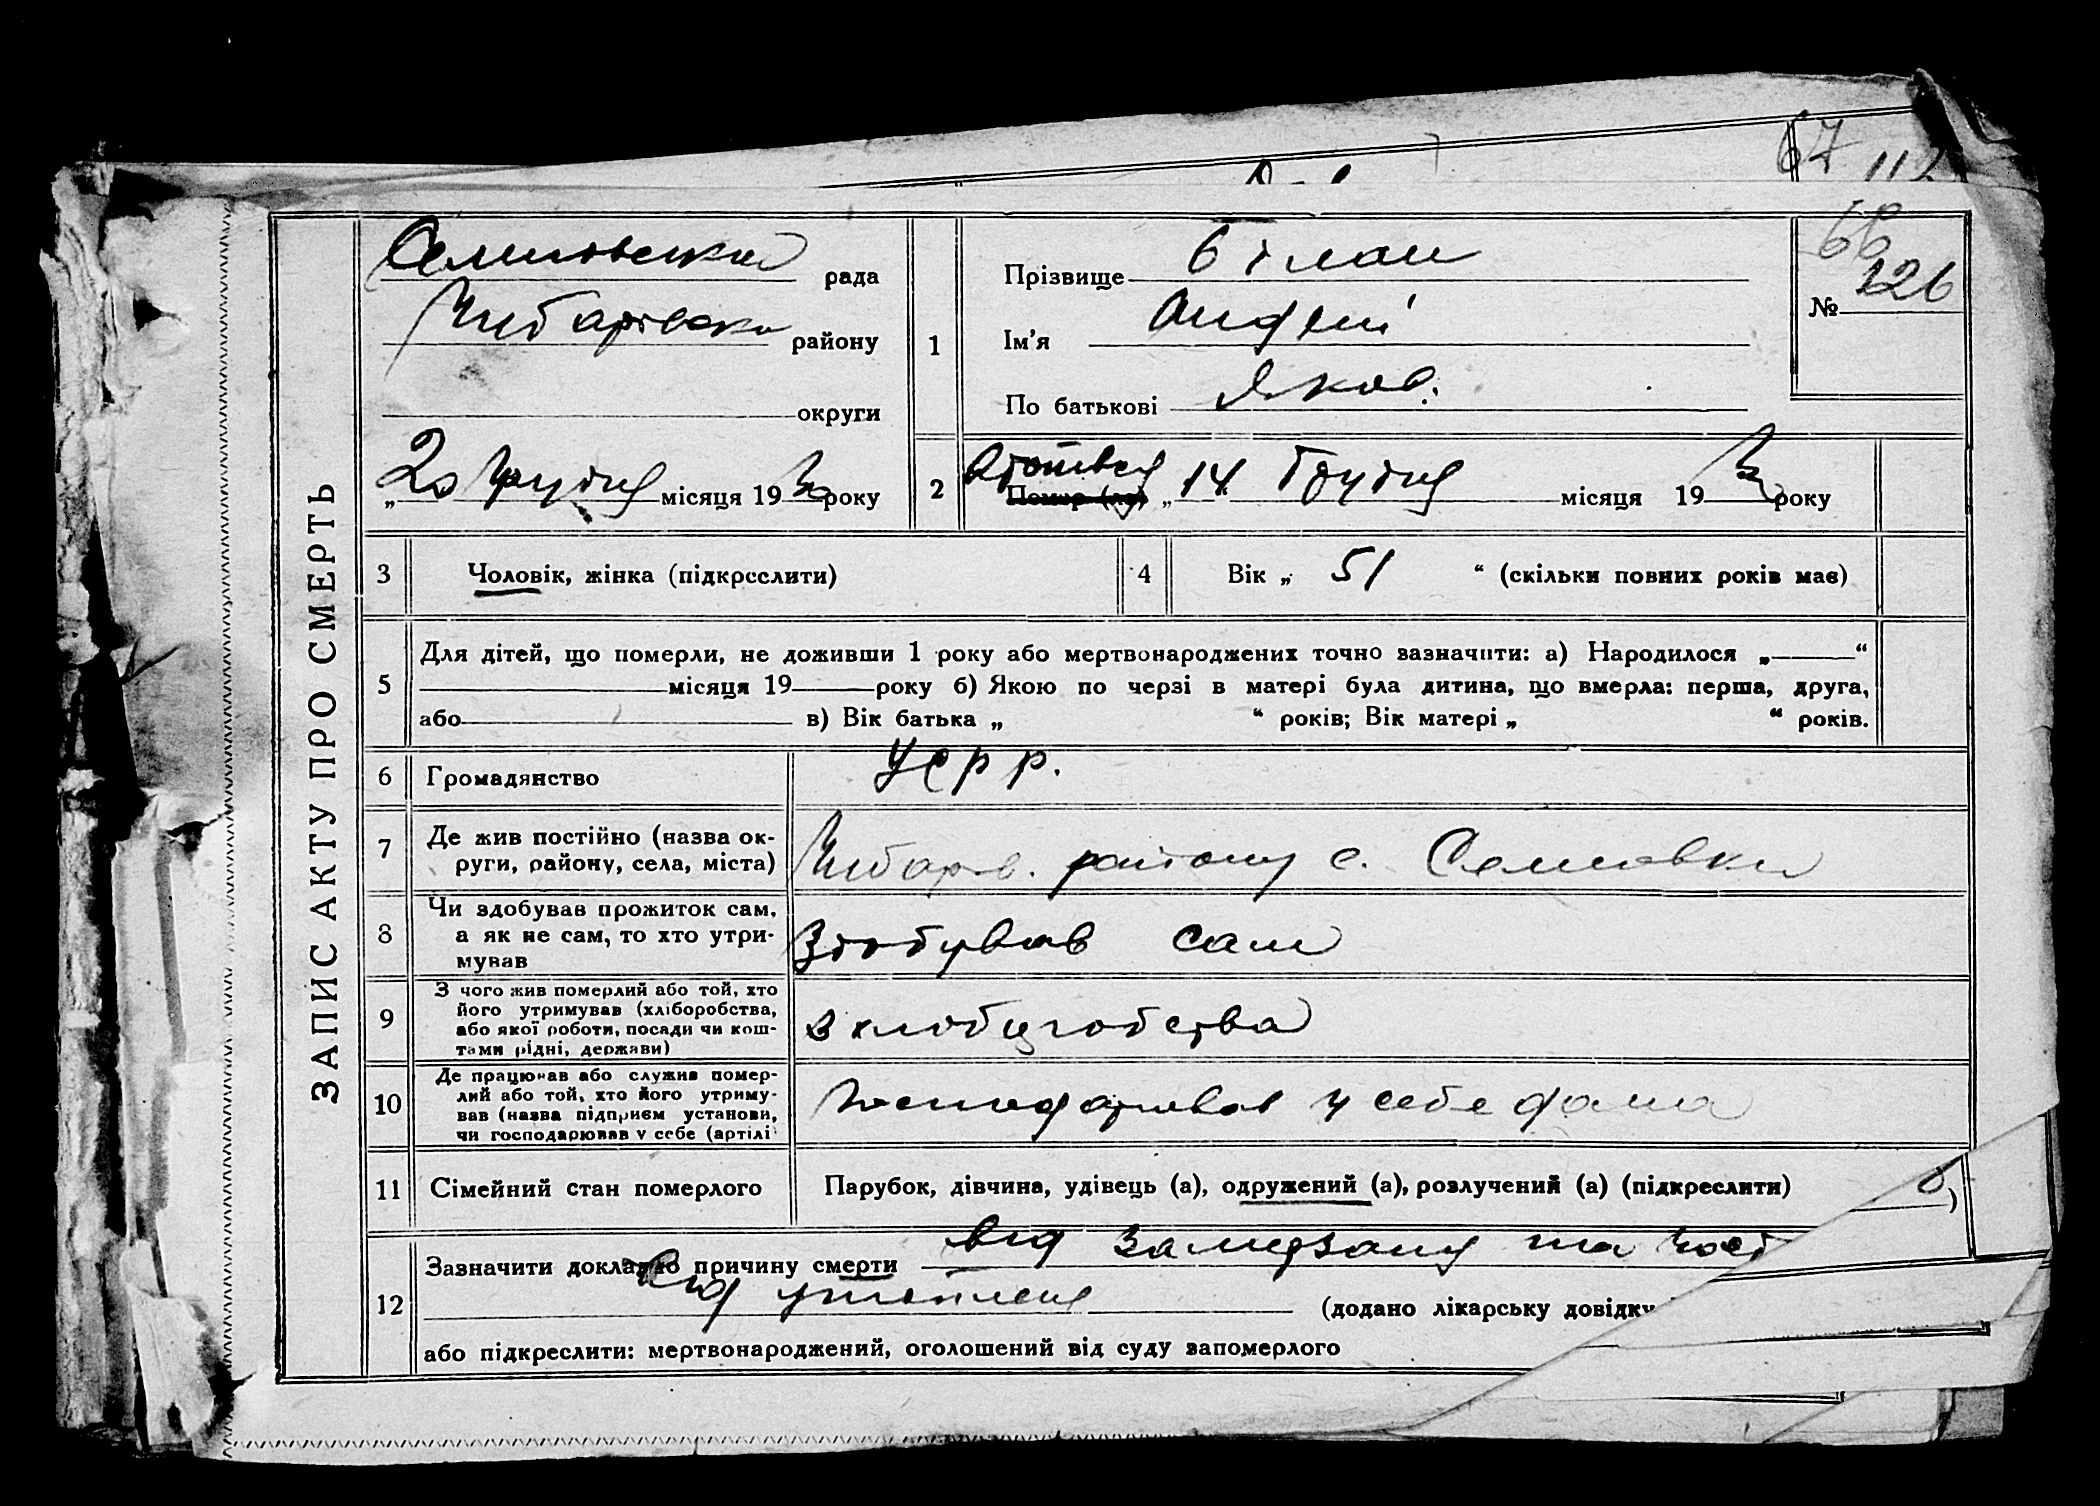 67 112
68
ЗАПИС АКТУ ПРО СМЕРТЬ
рада
району
округи
„20 Грудня місяця 19 32 року
1
Прізвище Білан
Ім'я Андрій
По батькові Яков.
№ 126
2
14 Грудня місяця 19 32 року
3 Чоловік, жінка (підкреслити)
4 Вік „ 51 “ (скільки повних років мав)
5 Для дітей, що померли, не доживши 1 року або мертвонароджених точно зазначити: а) Народилося „ “
місяця 19 року б) Якою по черзі в матері була дитина, що вмерла: перша, друга,
або в) Вік батька „ “ років; Вік матері „ “ років.
6 Громадянство УСРР.
7 Де жив постійно (назва ок-
руги, району, села, міста)
району с. Семиовка
8 Чи здобував прожиток сам,
а як не сам, то хто утри-
мував
Здобував сам
9 З чого жив померлий або той, хто
його утримував (хліборобства,
або якої роботи, посади чи кош-
тами рідні, держави)
З хлоборобства
10 Де працював або служив помер-
лий або той, хто його утриму-
вав (назва підприєм установи,
чи господарював у себе (артілі
Господарював у себе дома
11 Сімейний стан померлого
Парубок, дівчина, удівець (а), одружений (а), розлучений (а) (підкреслити)
12 Зазначити докладно причину смерти від
від
(додано лікарську довідку
або підкреслити: мертвонароджений, оголошений від суду запомерлого